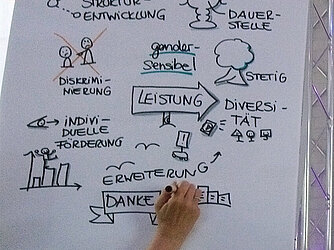 STRUKTUR-
ENTWICKLUNG
DAUER-
STELLE
gender-
sensibel
DISKRIMI-
NIERUNG
STETIG
LEISTUNG
DIVERSI-
TÄT
INDIVI-
DUELLE
FÖRDERUNG
ERWEITERUNG
DANKE